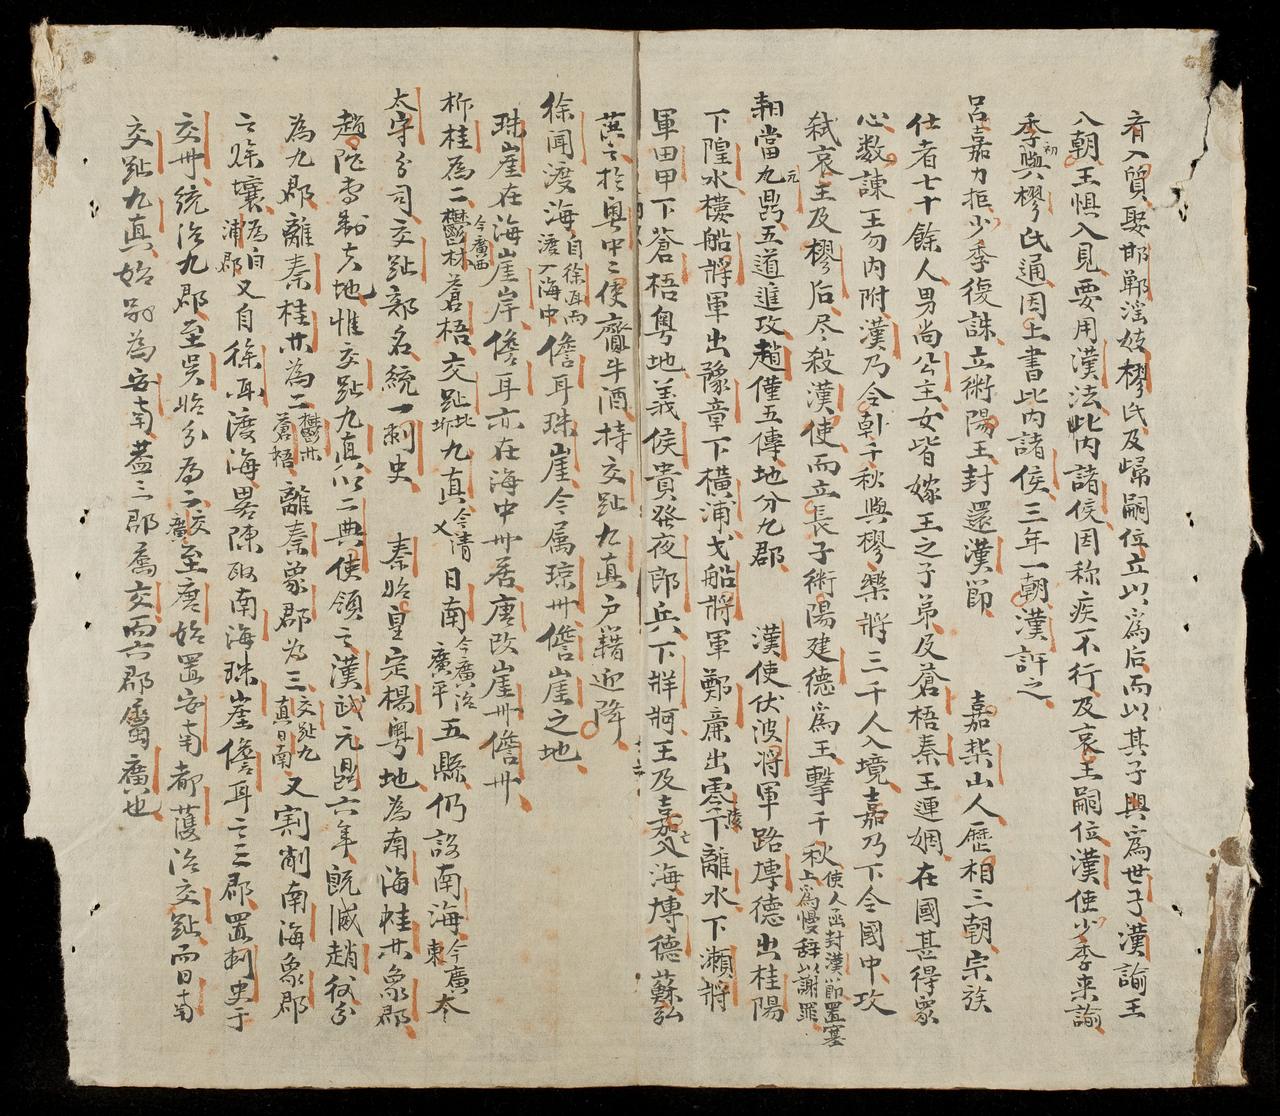 胥入質娶邯鄲淫妓樛氏及歸嗣位立以為后而以其子興為世子漢諭王
入朝王惧入見要用漢法比内諸侯因称疾不行及哀王嗣位漢使少季來諭
季初與樛氏通因上書比内諸侯三年一朝漢許之
吕嘉力拒少季復誅立術陽王封還漢節 嘉柴山人歷相三朝宗族
仕者七十餘人男尚公主女皆嫁王之子弟及蒼梧秦王連姻在國甚得衆
心数諫王勿内附漢乃令韩千秋與樛樂將三千人入境嘉乃下令國中攻
弑哀王及樛后尽殺漢使而立長子術陽建德為王擊千秋使人函封漢節置塞上為慢辞以謝罪
朝當元九鼎五道進攻趙僅五傳地分九郡 漢使伏波将軍路博德出桂陽
下湟水樓船將軍出豫章下橫浦戈船將軍鄭廉出零陵下離水下瀬將
軍田甲下蒼梧粤地義侯貴發夜郎兵下牂牁王及嘉亡入海博德蘇弘
於粤中二使齎牛酒持交趾九真户籍迎降
徐闻渡海自徐耳而渡入海中儋耳珠崖今属琼州儋崖之地
珠崖在海崖岸儋耳亦在海中州居唐改崖州儋州
析桂為二今廣西欝林蒼梧交趾北圻九真今清乂日南今廣治廣平五縣仍設南海今廣東太
太守分司交趾部名統一刺史 秦始皇定楊粤地為南海桂林象郡
趙佗專制其地惟交趾九真以二典使領之漢武元鼎六年既滅趙役分
為九郡離秦桂林為二欝林蒼梧離秦象郡為三交趾九真日南又割削南海象郡
之餘壤為合浦郡又自徐耳渡海畧陳取南海珠崖儋耳之三郡置刺史于
交州統治九郡至吳始分為二交廣至唐始置安南都護治交趾而日南
交趾九真始别為安南蓋三郡舊交而六郡屬廣也